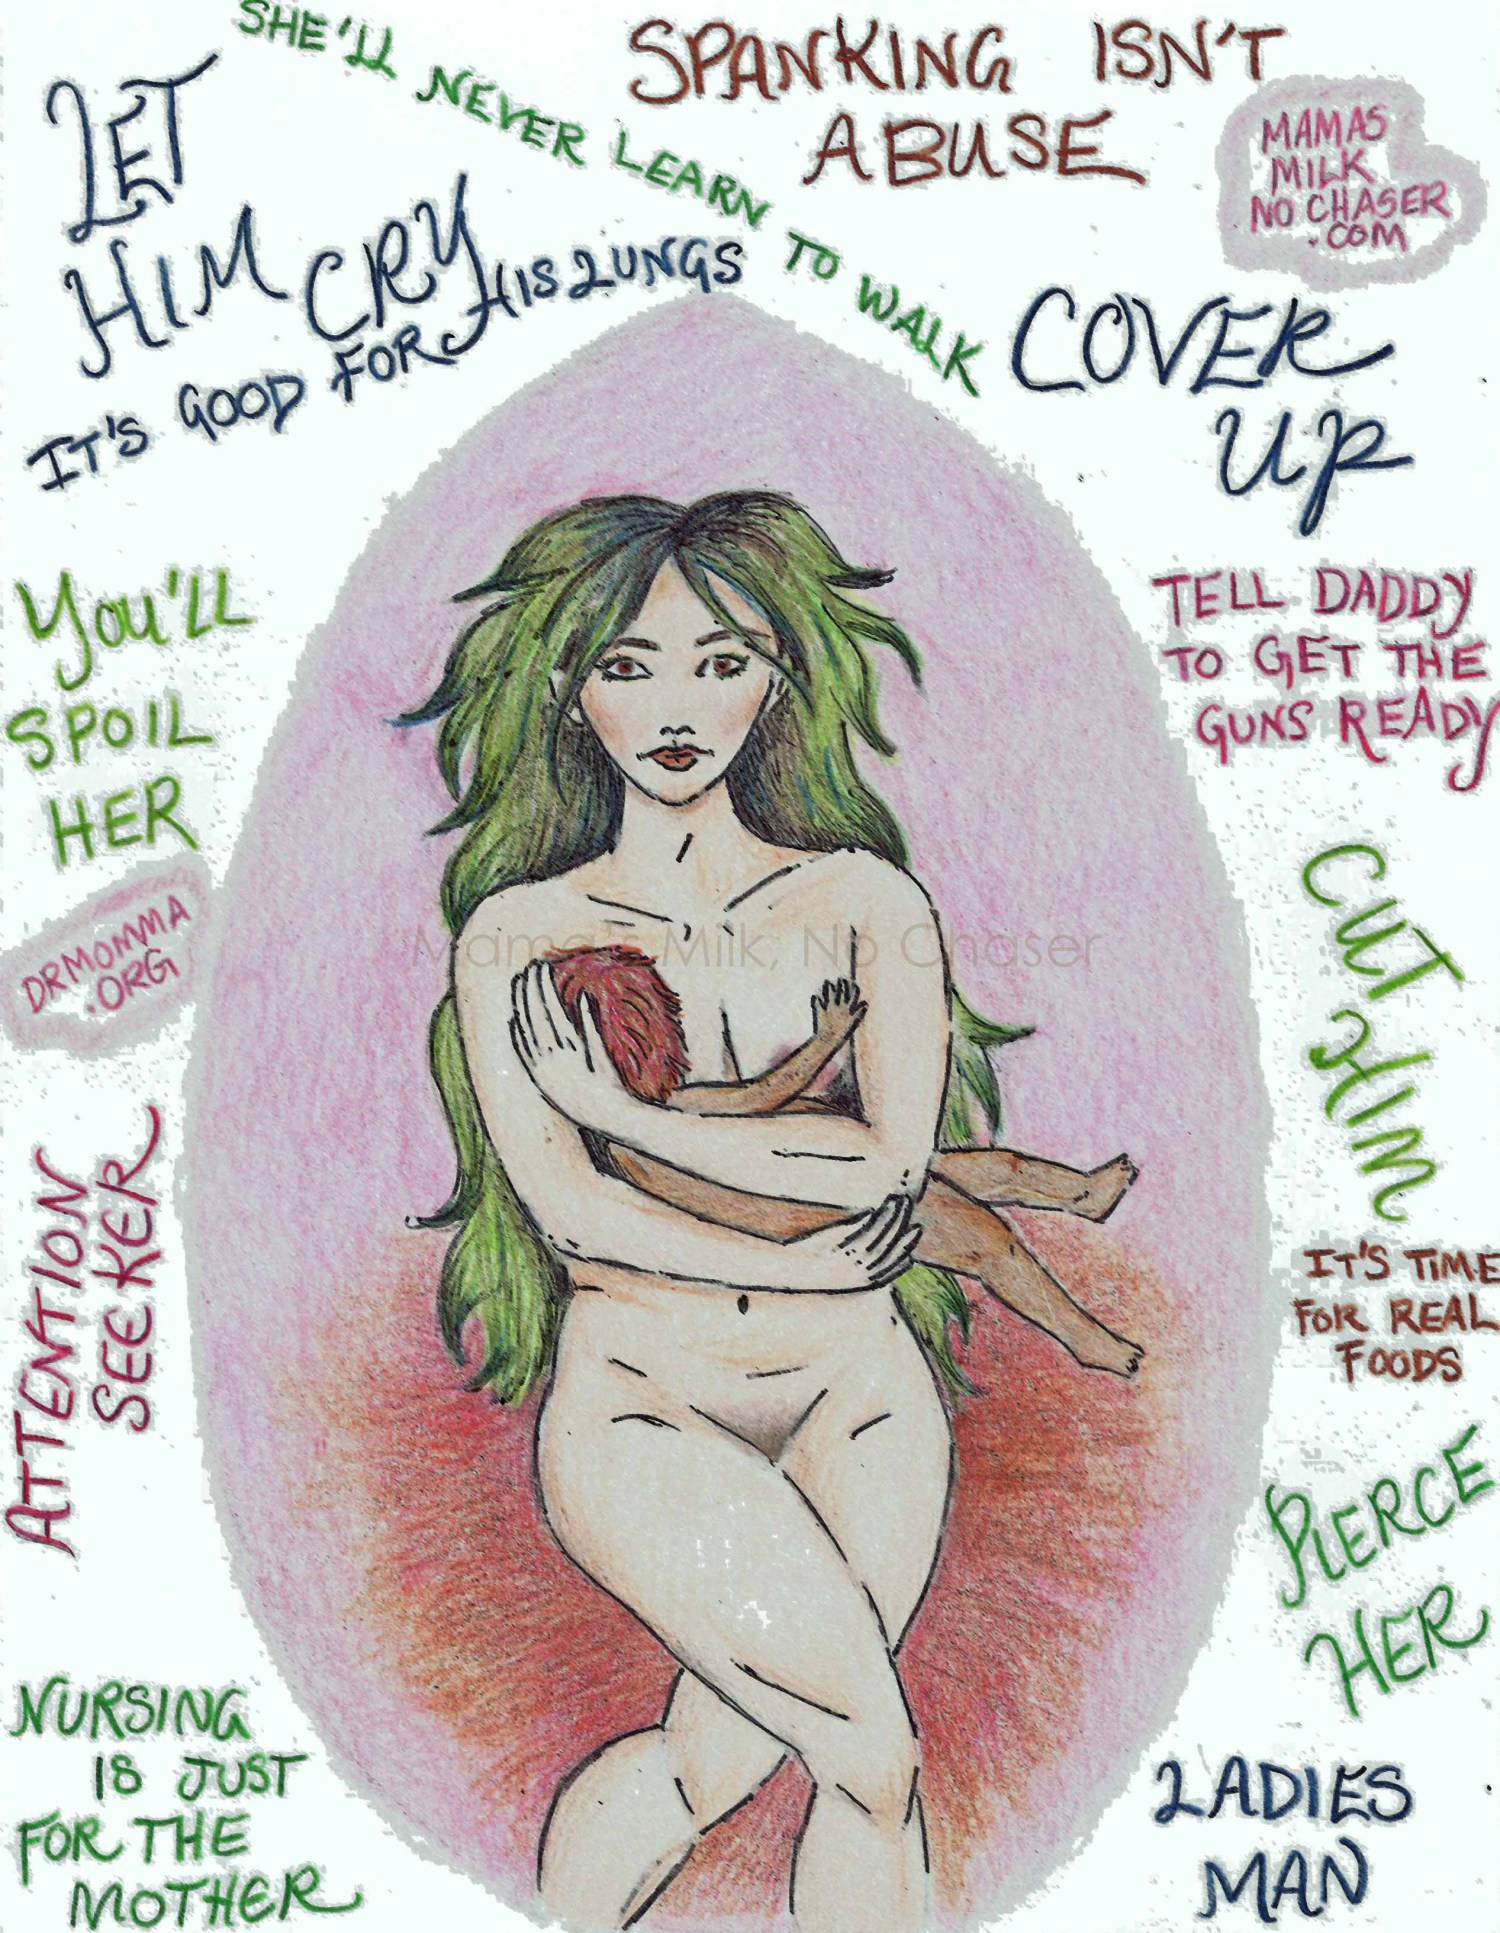 SHE'LL NEVER LEARN TO WALK
SPANKING ISN'T
ABUSE
LET
HIM CRY
IT'S GOOD FOR HIS LUNGS
MAMAS
MILK
NO CHASER
.COM
COVER
UP
YOU'LL
SPOIL
HER
TELL DADDY
TO GET THE
GUNS READY
DRMOMMA
.ORG
CUT
HIM
Mama's Milk, No Chaser
ATTENTION
SEEKER
IT'S TIME
FOR REAL
FOODS
PIERCE
HER
NURSING
IS JUST
FOR THE
MOTHER
LADIES
MAN